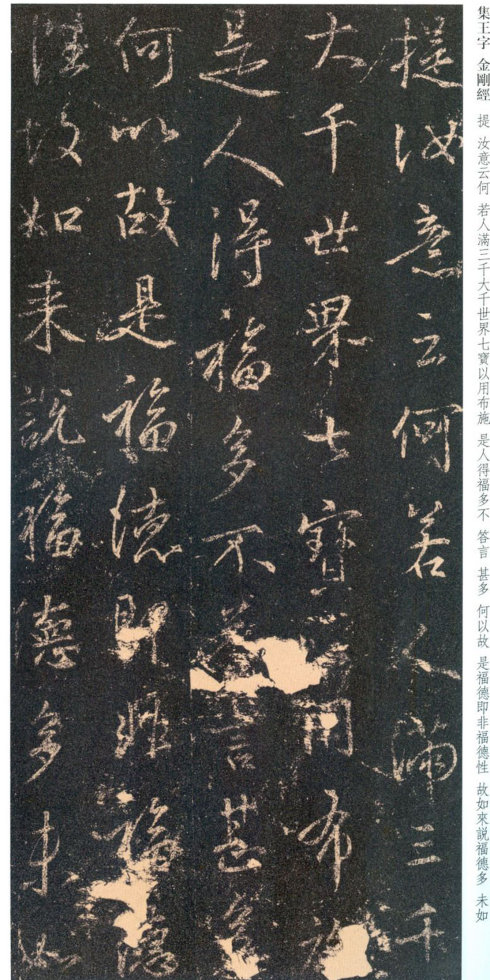 集王字 金剛經 提 汝意云何 若人滿三千大千世界七寶以用布施 是人得福多不 答言 甚多 何以故 是福德即非福德性 故如來說福德多 未如
提汝意云何若人滿三千
大千世界七寶用布施
是人得福多不言甚多
何以故是福德即非福德
性故如来說福德多未如